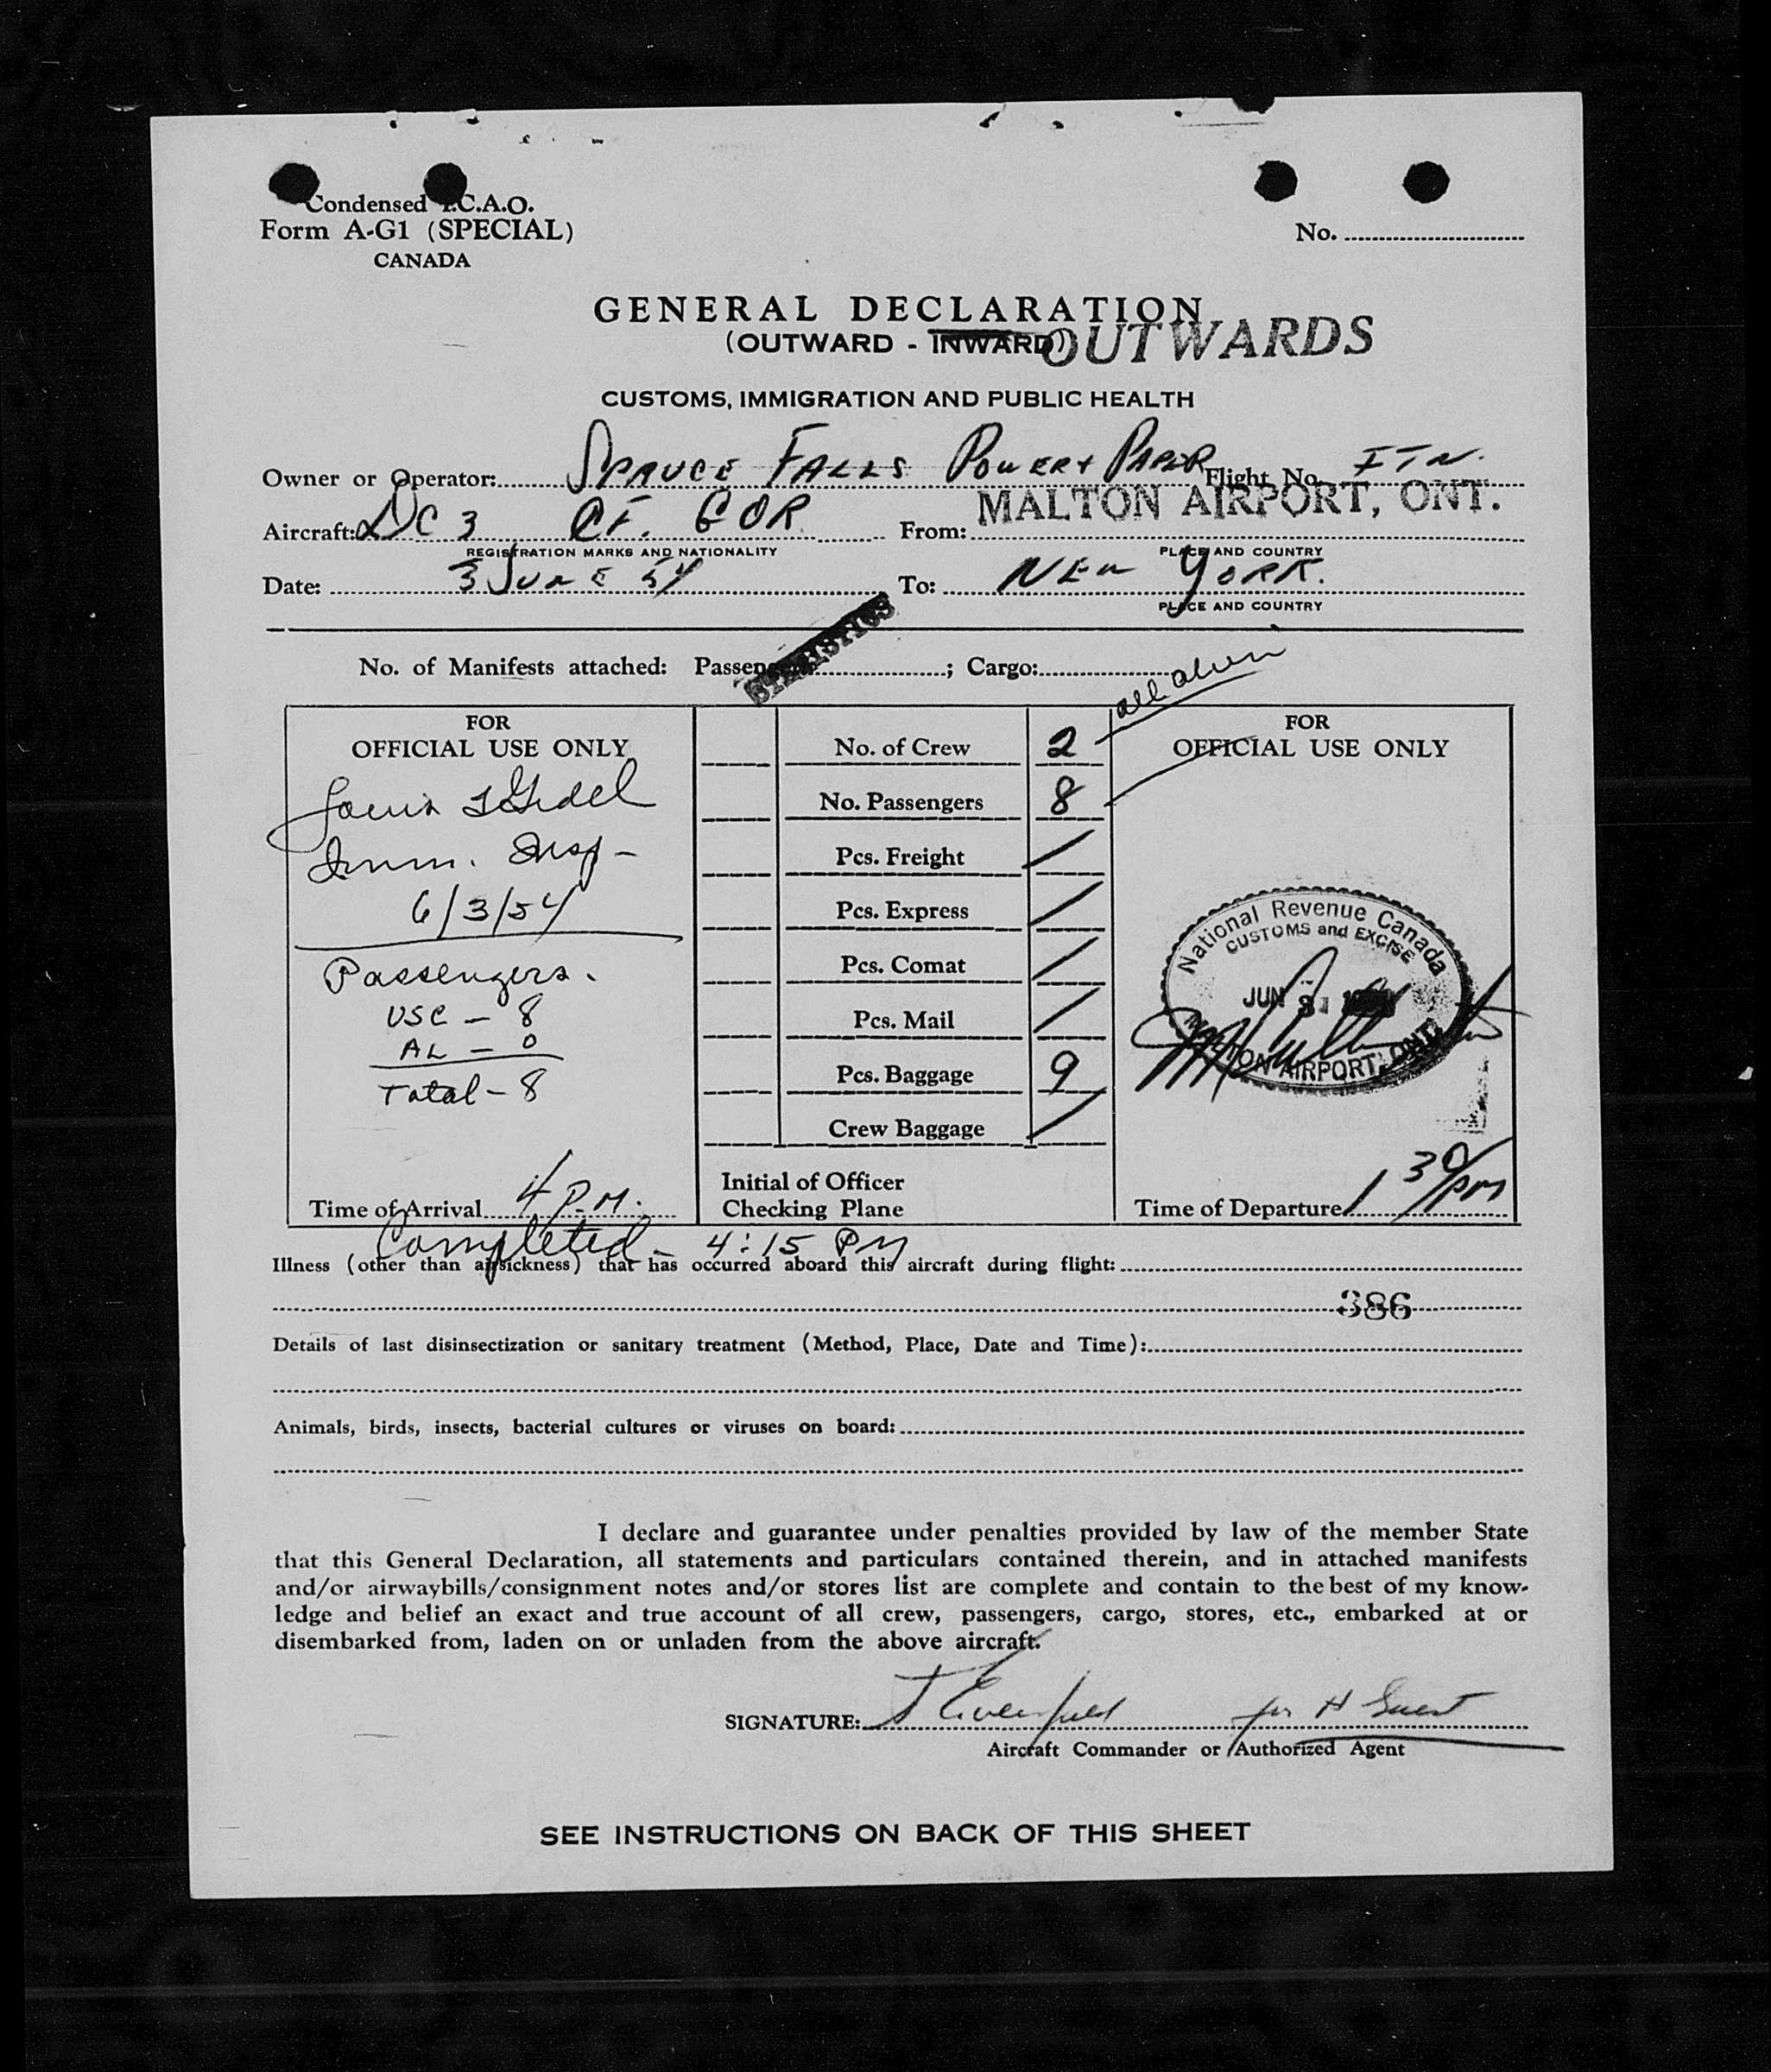 Condensed I.C.A.O.
Form A-G1 (SPECIAL)
CANADA
No.
GENERAL DECLARATION
(OUTWARD - INWARD) OUTWARDS
CUSTOMS, IMMIGRATION AND PUBLIC HEALTH
Owner or Operator: SPRUCE FALLS POWER + PAPER Flight No. ITN.
Aircraft: DC 3 CF. GOR From: MALTON AIRPORT, ONT.
REGISTRATION MARKS AND NATIONALITY PLACE AND COUNTRY
Date: 3 JUNE 54 To: NEW YORK.
PLACE AND COUNTRY
STATISTICS
No. of Manifests attached: Passengers ; Cargo:
all
FOR
OFFICIAL USE ONLY
Louis
Imm. Insp -
6/3/54
Passengers.
USC - 8
AL - 0
Total - 8
Time of Arrival 4 P.M.
No. of Crew 2
No. Passengers 8
Pcs. Freight /
Pcs. Express /
Pcs. Comat /
Pcs. Mail /
Pcs. Baggage 9
Crew Baggage /
Initial of Officer
Checking Plane
FOR
OFFICIAL USE ONLY
National Revenue Canada
CUSTOMS and EXCISE
JUN 3
MALTON AIRPORT, ONT.
Time of Departure 1 30/pm
Completed - 4:15 PM
Illness (other than airsickness) that has occurred aboard this aircraft during flight:
386
Details of last disinsectization or sanitary treatment (Method, Place, Date and Time):
Animals, birds, insects, bacterial cultures or viruses on board:
I declare and guarantee under penalties provided by law of the member State
that this General Declaration, all statements and particulars contained therein, and in attached manifests
and/or airwaybills/consignment notes and/or stores list are complete and contain to the best of my know-
ledge and belief an exact and true account of all crew, passengers, cargo, stores, etc., embarked at or
disembarked from, laden on or unladen from the above aircraft.
SIGNATURE: for H Guest
Aircraft Commander or Authorized Agent
SEE INSTRUCTIONS ON BACK OF THIS SHEET